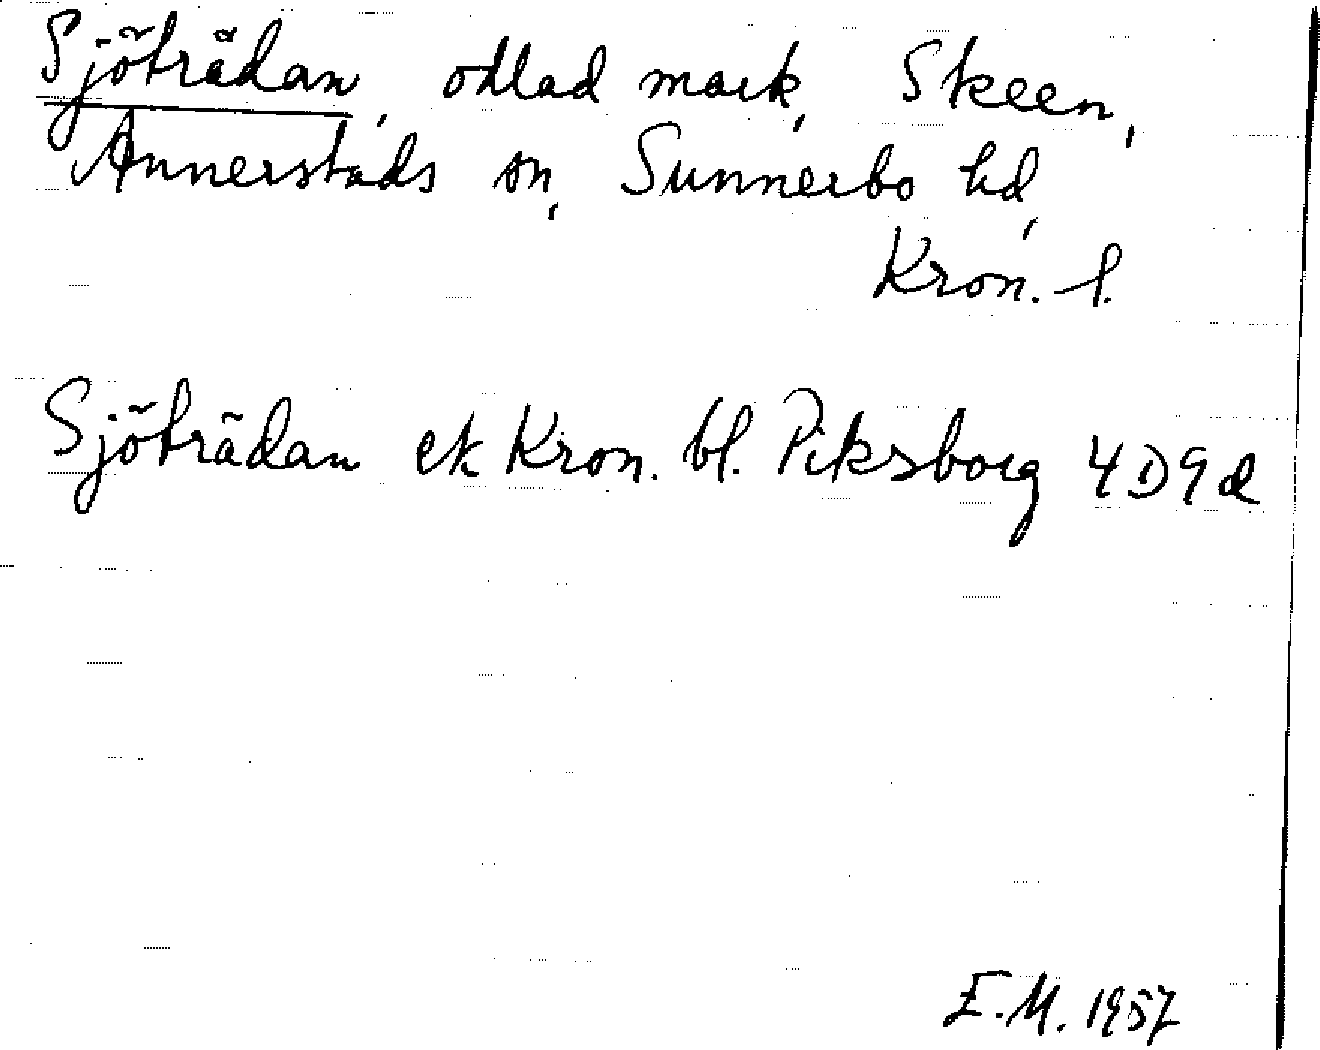 Sjöträdan, odlad mark, Skeen,
Annerstads sn, Sunnerbo hd,
Kron. l.
Sjöträdan ek Kron. bl. Piksborg 4D9d
E.M. 1957